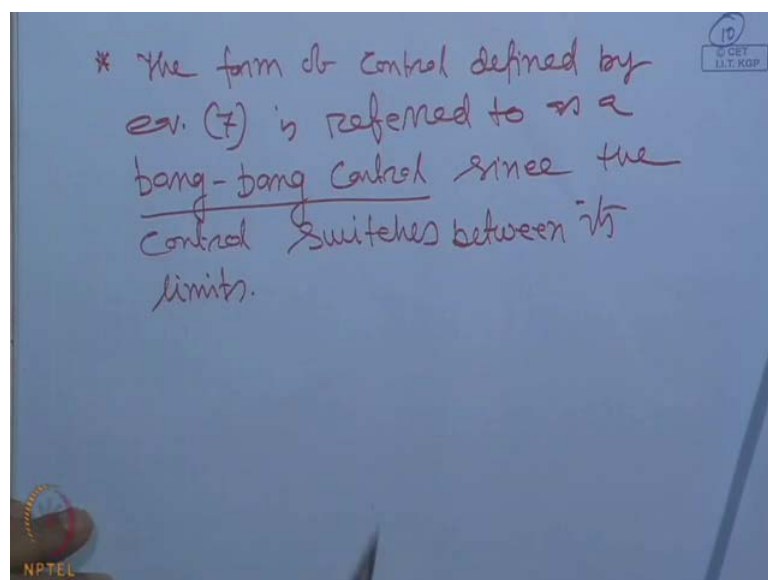 10
© CET
I.I.T. KGP
* The form of control defined by
eq. (7) is referred to as a
bang-bang control since the
control switches between its
limits.
NPTEL